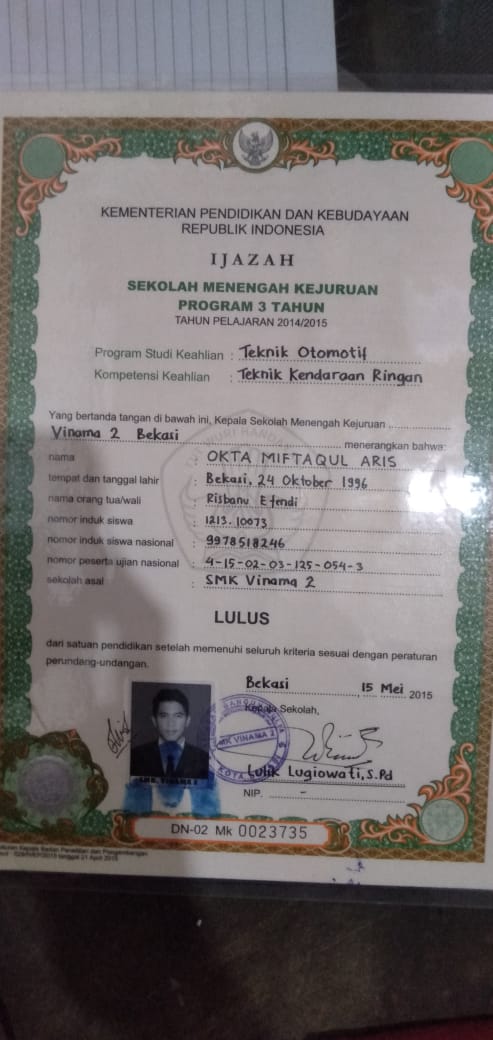 KEMENTERIAN PENDIDIKAN DAN KEBUDAYAAN
REPUBLIK INDONESIA
IJAZAH
SEKOLAH MENENGAH KEJURUAN
PROGRAM 3 TAHUN
TAHUN PELAJARAN 2014/2015
Program Studi Keahlian : Teknik Otomotif
Kompetensi Keahlian : Teknik Kendaraan Ringan
Yang bertanda tangan di bawah ini, Kepala Sekolah Menengah Kejuruan
Vinama 2 Bekasi menerangkan bahwa:
nama : OKTA MIFTAQUL ARIS
tempat dan tanggal lahir : Bekasi, 24 Oktober 1996
nama orang tua/wali : Risbanu Efendi
nomor induk siswa : 1213.10073
nomor induk siswa nasional : 9978518246
nomor peserta ujian nasional : 4-15-02-03-125-054-3
sekolah asal : SMK Vinama 2
LULUS
dari satuan pendidikan setelah memenuhi seluruh kriteria sesuai dengan peraturan
perundang-undangan.
Bekasi, 15 Mei 2015
Kepala Sekolah,
MK VINAMA 2
Lulik Lugiowati, S.Pd
NIP. -
SMK VINAMA 2
DN-02 Mk 0023735